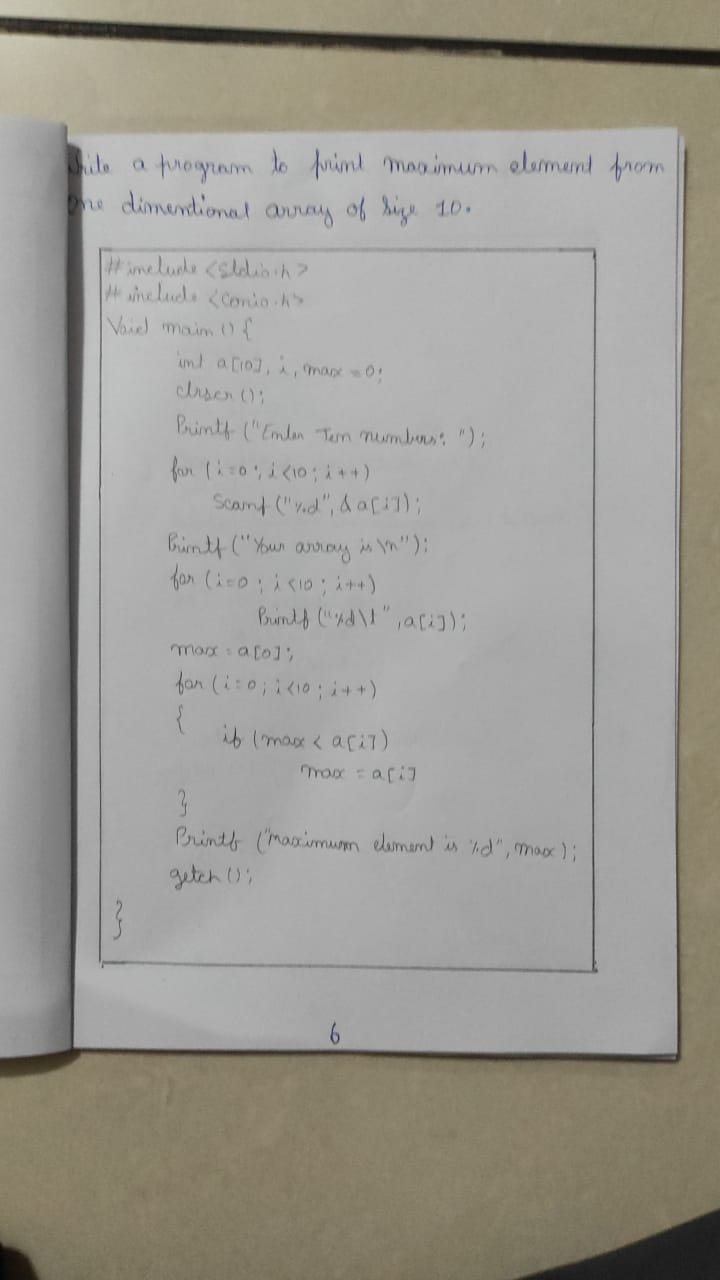 Write a program to print maximum element from
one dimentional array of size 10.
#include <stdio.h>
#include <conio.h>
Void main () {
int a[10], i, max = 0;
clrscr ();
Printf ("Enter Ten numbers: ");
for (i=0; i<10; i++)
Scanf ("%d", & a[i]);
Printf ("Your array is \n");
for (i=0; i<10; i++)
Printf ("%d\t", a[i]);
max = a[0];
for (i=0; i<10; i++)
{
if (max < a[i])
max = a[i]
}
Printf ("maximum element is %d", max);
getch ();
}
6